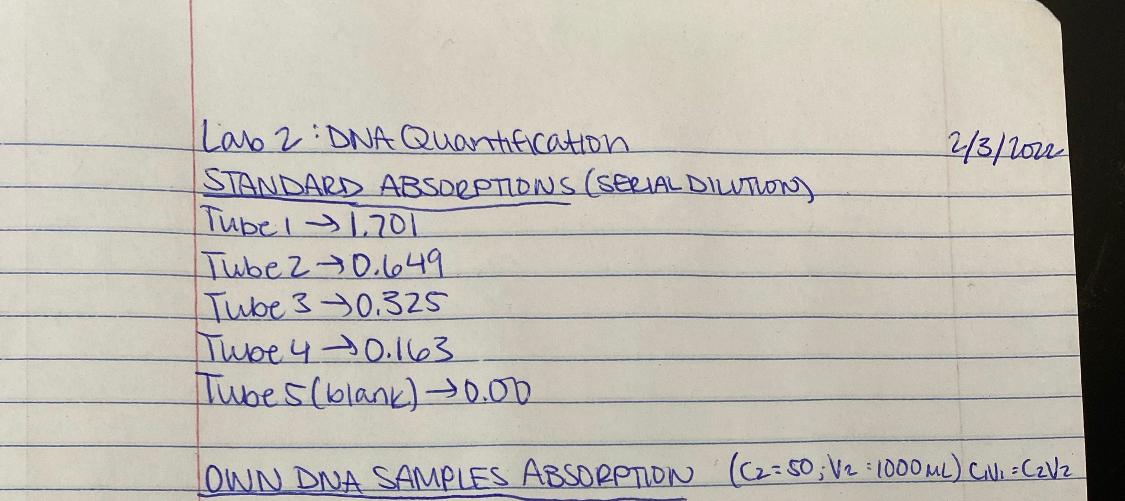 Lab 2: DNA Quantification 2/3/2022
STANDARD ABSORPTIONS (SERIAL DILUTION)
Tube 1 → 1.701
Tube 2 → 0.649
Tube 3 → 0.325
Tube 4 → 0.163
Tube 5 (blank) → 0.00
OWN DNA SAMPLES ABSORPTION (C2=50; V2:1000ML) C1V1=C2V2